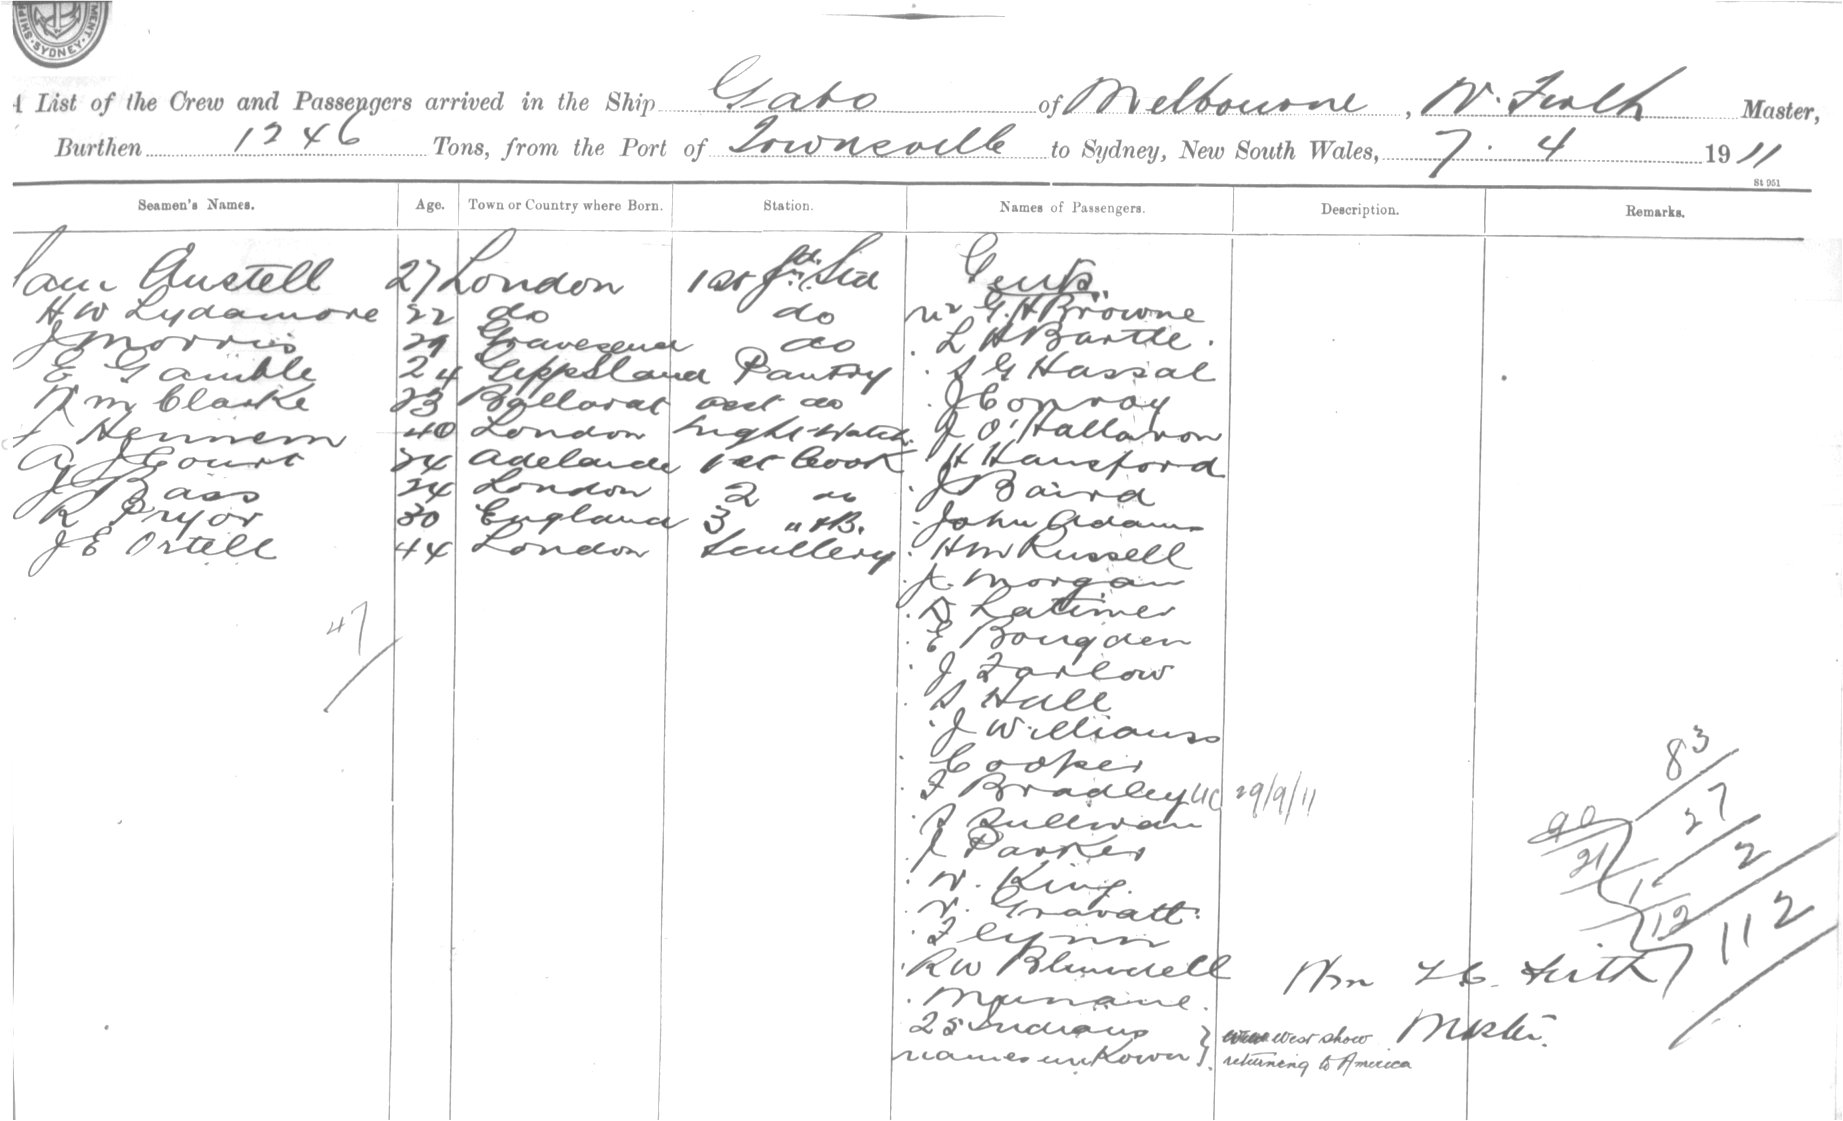 SYDNEY
A List of the Crew and Passengers arrived in the Ship Gabo of Melbourne, W. Firth Master,
Burthen 1246 Tons, from the Port of Townsville to Sydney, New South Wales, 7. 4 1911
St 951
Seamen's Names. Age. Town or Country where Born. Station. Names of Passengers. Description. Remarks.
Austell 27 London 1st Sta Gents
H W Lydamore 22 do do Mr G. H Browne
J Morris 29 Gravesend do L H Bartle.
E Gamble 24 Gippsland Pantry S G Hassal
W M Clarke 23 Ballarat asst do J Conroy
Hennem 40 London Night Watch J O'Hallaron
A J Court 24 Adelaide 1st Cook H Hansford
J Bass 24 London 2 do J Baird
R Pryor 30 England 3 " & B. John Adams
J E Ortell 44 London Scullery H M Russell
J. Morgan
47 D Latimer
E Bougden
J Farlow
S Hall
J Williams
Cooper
F Bradley UC 29/9/11
S Sullivan
J Parker
W. King.
V. Gravatt.
Flynn
R W Blundell Wm F. C. Firth
Munane.
25 Indians } West show Master.
names unKown } returning to America
83
27
2
112
90
21
1
112